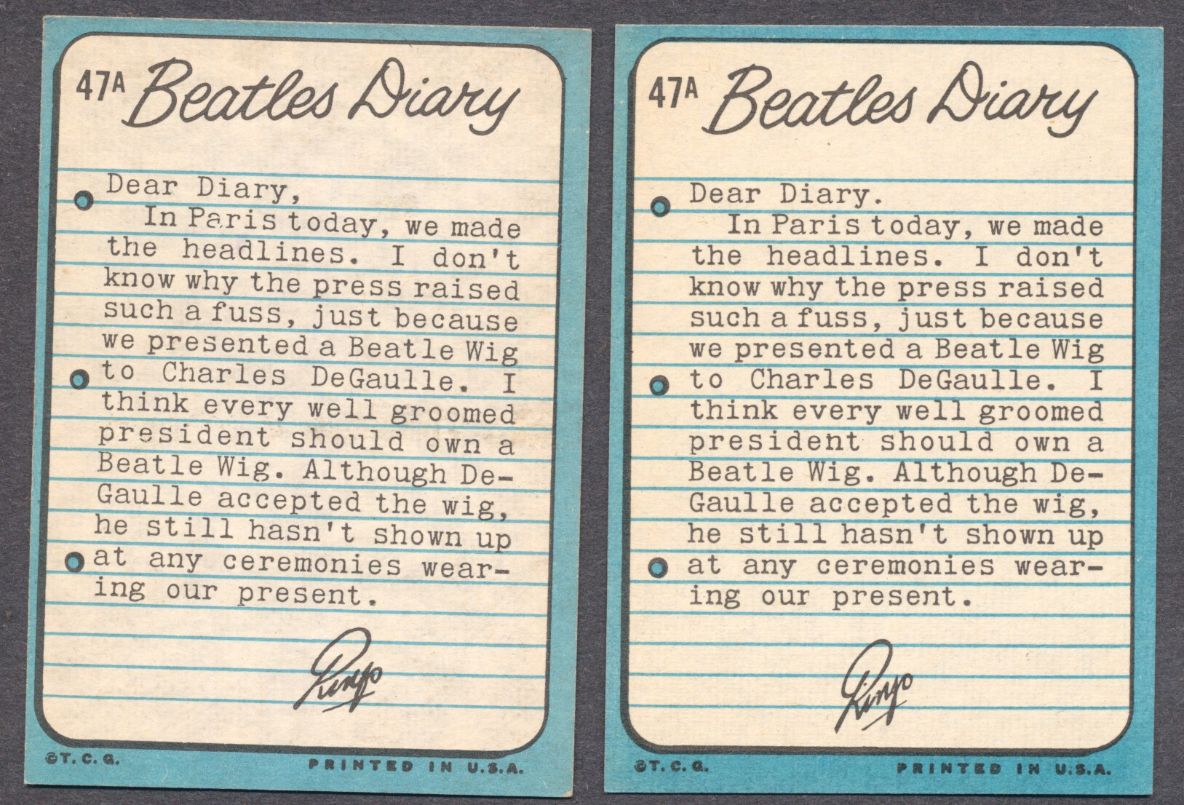 47A Beatles Diary
Dear Diary,
In Paris today, we made
the headlines. I don't
know why the press raised
such a fuss, just because
we presented a Beatle Wig
to Charles DeGaulle. I
think every well groomed
president should own a
Beatle Wig. Although De-
Gaulle accepted the wig,
he still hasn't shown up
at any ceremonies wear-
ing our present.
Ringo
©T. C. G. PRINTED IN U.S.A.
47A Beatles Diary
Dear Diary.
In Paris today, we made
the headlines. I don't
know why the press raised
such a fuss, just because
we presented a Beatle Wig
to Charles DeGaulle. I
think every well groomed
president should own a
Beatle Wig. Although De-
Gaulle accepted the wig,
he still hasn't shown up
at any ceremonies wear-
ing our present.
Ringo
©T. C. G. PRINTED IN U.S.A.